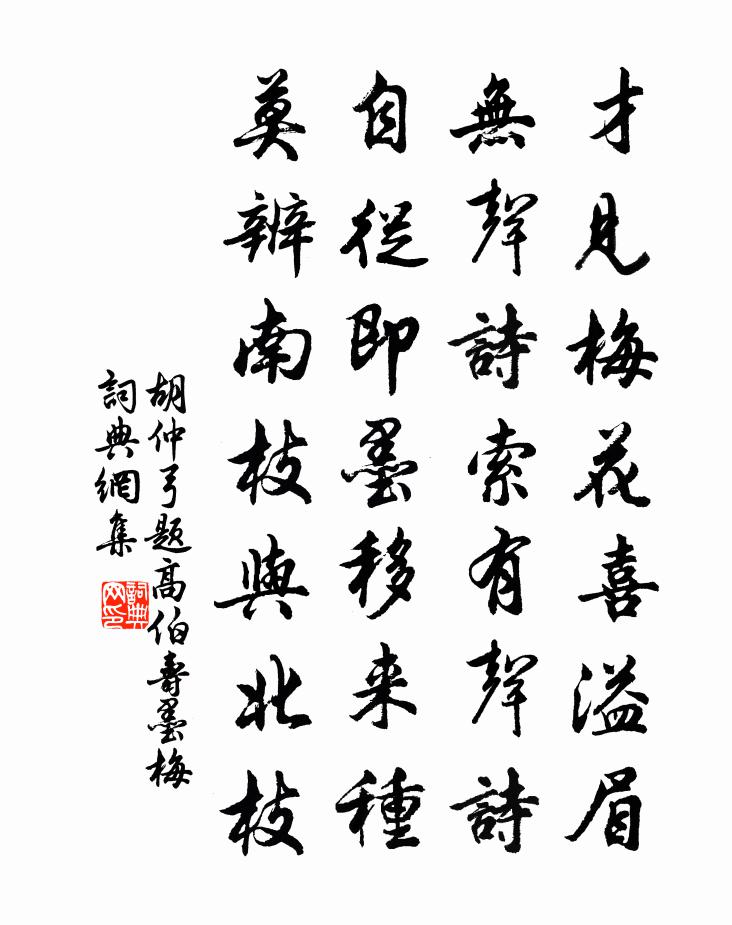 才見梅花喜溢眉
無聲詩索有聲詩
自從即墨移来種
莫辨南枝與北枝
胡仲弓題高伯壽墨梅
詞典網集
詞典网印